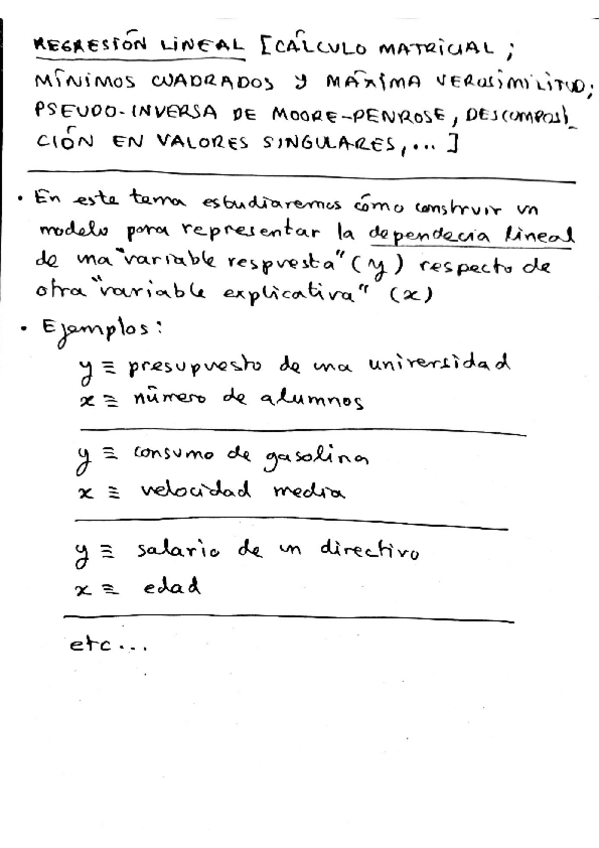 REGRESIÓN LINEAL [CÁLCULO MATRICIAL;
MÍNIMOS CUADRADOS Y MÁXIMA VEROSIMILITUD;
PSEUDO-INVERSA DE MOORE-PENROSE, DESCOMPOSI_
CIÓN EN VALORES SINGULARES, ... ]
• En este tema estudiaremos cómo construir un
modelo para representar la dependecia lineal
de una "variable respuesta" (y) respecto de
otra "variable explicativa" (x)
• Ejemplos:
y ≡ presupuesto de una universidad
x ≡ número de alumnos
y ≡ consumo de gasolina
x ≡ velocidad media
y ≡ salario de un directivo
x ≡ edad
etc...